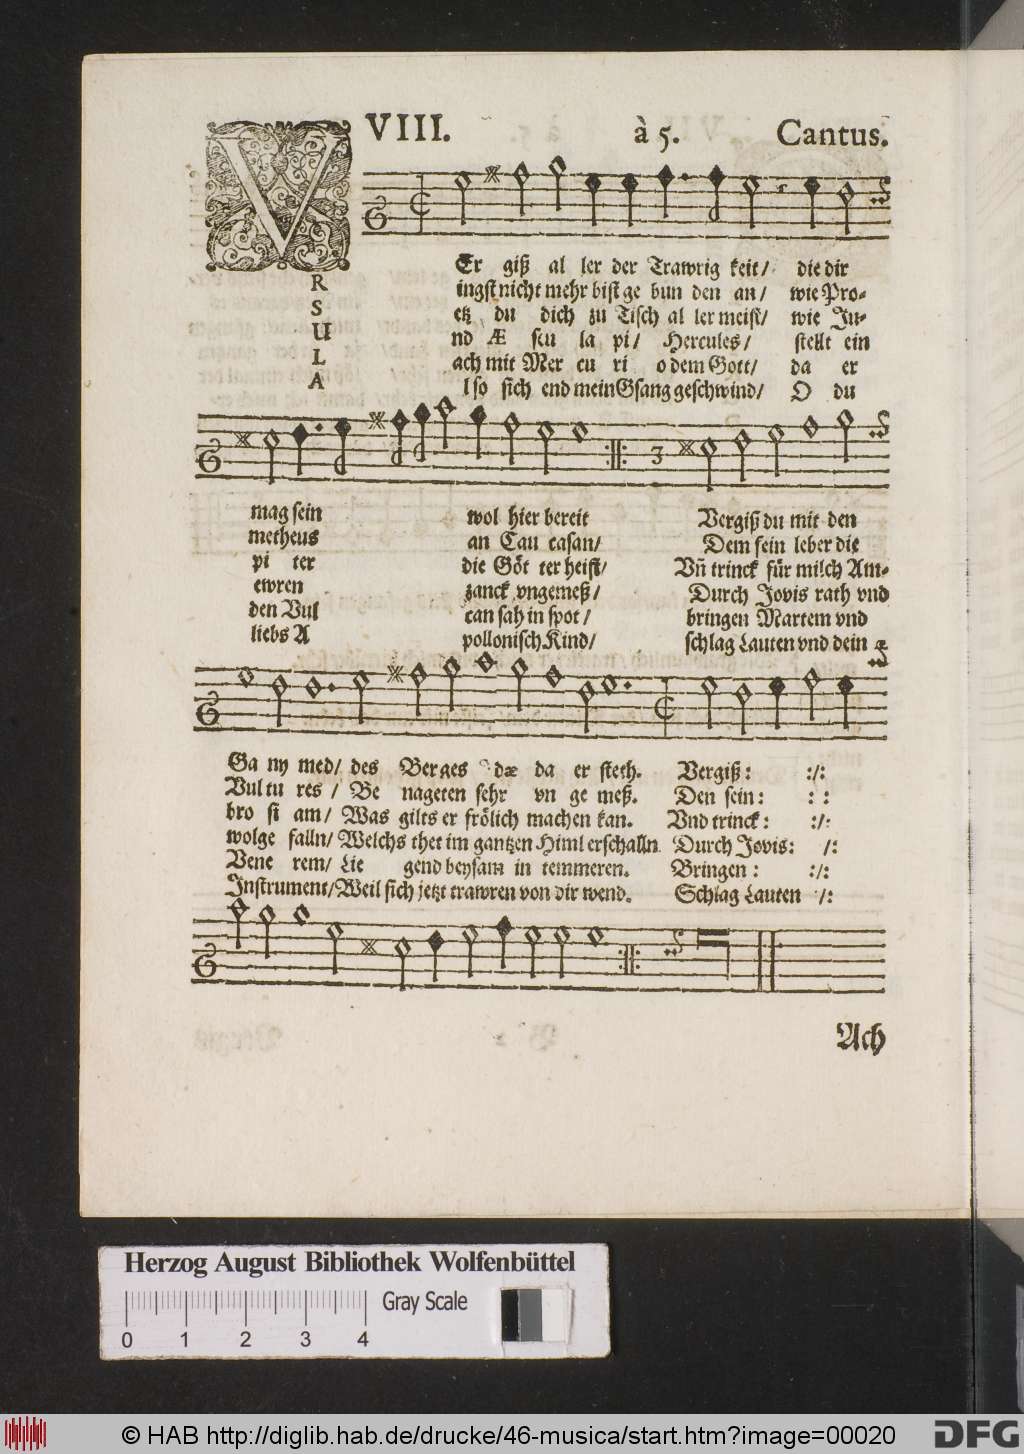 VIII. à 5. Cantus.
V
R
S
U
L
A
Er giß al ler der Trawrig keit/ die dir
ingst nicht mehr bist ge bun den an/ wie Pro-
etz du dich zu Tisch al ler meist/ wie Ju-
nd Æ scu la pi/ Hercules/ stellt ein
ach mit Mer cu ri o dem Gott/ da er
lso sich end mein Gsang geschwind/ O du
mag sein wol hier bereit Vergiß du mit den
metheus an Cau casan/ Dem sein leber die
pi ter die Göt ter heist/ Vñ trinck für milch Am-
ewren zanck vngemeß/ Durch Jovis rath vnd
den Vul can sah in spot/ bringen Martem vnd
liebs A pollonisch Kind/ schlag Lauten vnd dein
3
Ga ny med/ des Berges dæ da er steth. Vergiß: :/:
Vul tu res/ Be nageten sehr vn ge meß. Den sein: : :
bro si am/ Was gilts er frölich machen kan. Vnd trinck: :/:
wolge falln/ Welchs thet im gantzen Himl erschalln Durch Jovis: /:
Vene rem/ Lie gend beysam in temmeren. Bringen: :/:
Instrument/ Weil sich jetzt trawren von dir wend. Schlag Lauten :/:
Ach
Herzog August Bibliothek Wolfenbüttel
Gray Scale
0 1 2 3 4
© HAB http://diglib.hab.de/drucke/46-musica/start.htm?image=00020
DFG